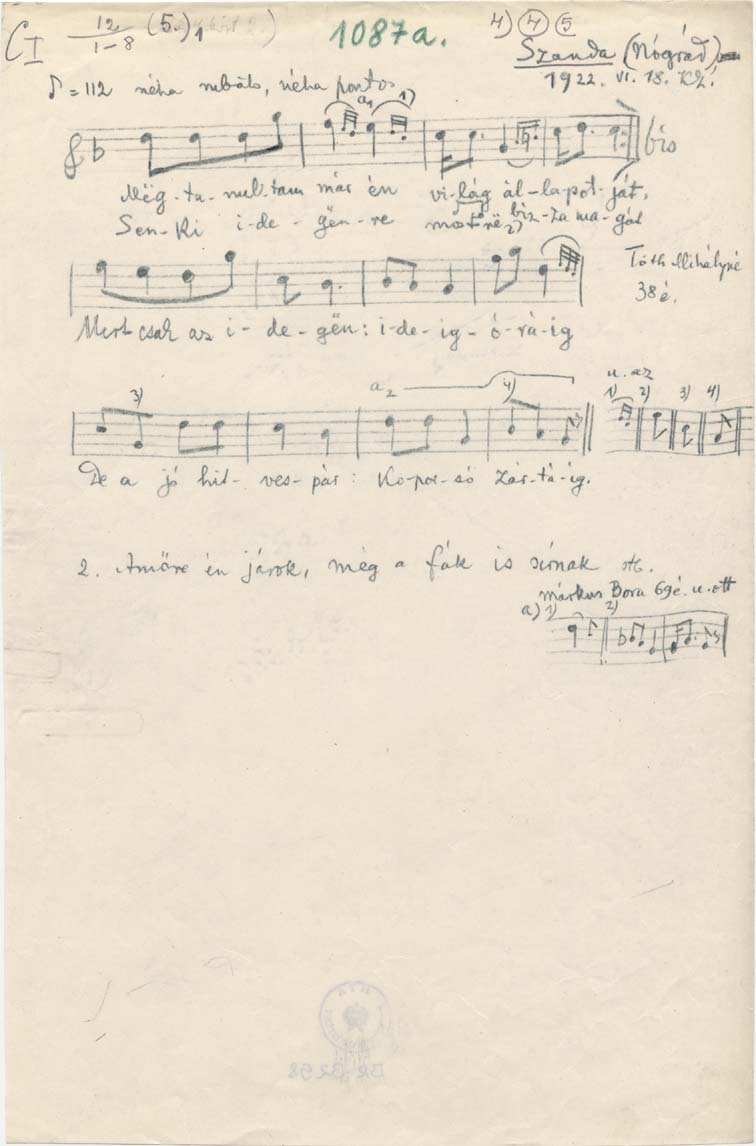 C I 12/1-8 (5.)1 1087a. 4) 4 5
Szanda (Nógrád)
1922. VI. 18. KZ.
♪ = 112 néha rubato, néha pontos
a1 1)
bis
Mëg-ta-nul-tam már én vi-lág ál-la-pot-ját,
Sen-ki i-de-gën-re most në biz-za ma-gát
2)
Tóth Mihályné
38 é.
Mert csak az i-de-gën: i-de-ig-ó-rá-ig
3) a2 4)
u. az
1) 2) 3) 4)
De a jó hit-ves-pár: Ko-por-só zár-tá-ig.
2. Amőre én járok, még a fák is sírnak stb.
Márkus Bora 69é. u. ott
a) 1) 2)
BR 3298